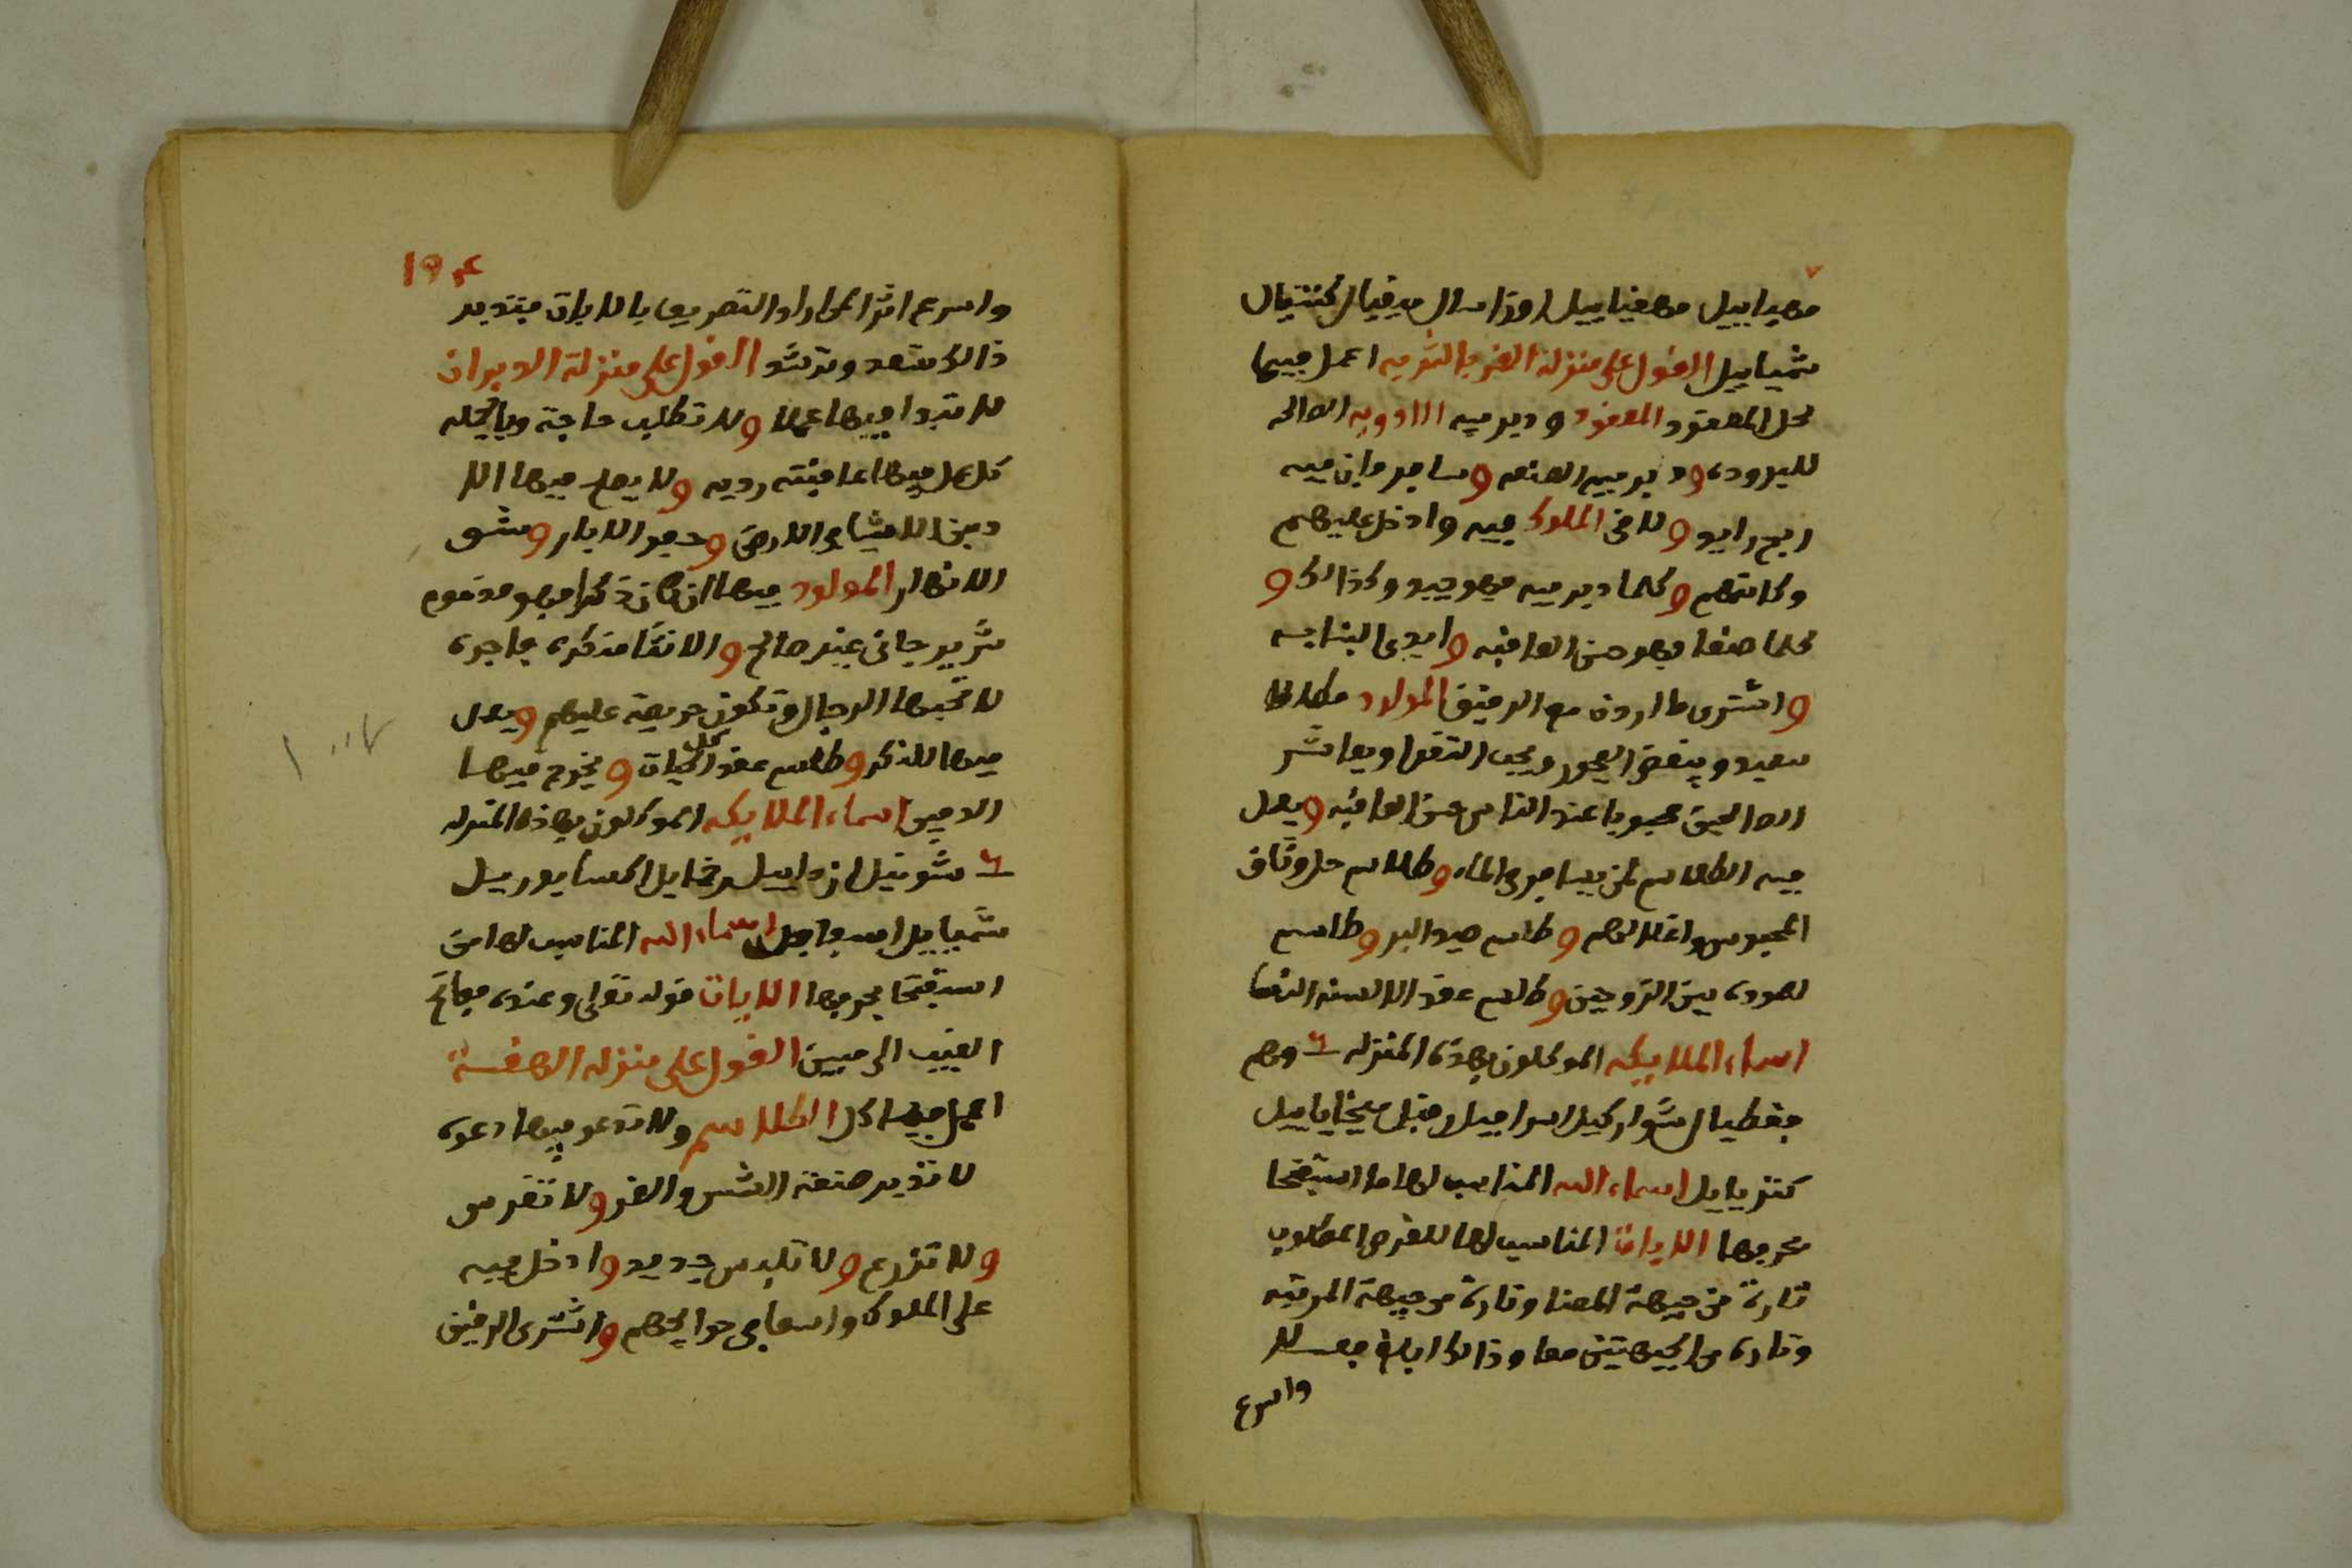 مهيداييل مهفياييل اوزاسال ميقيال كنتيال
شمياييل القول على منزلة القمر بالثريه اعمل فيها
لحل المعقود المعقود ودبر فيه الادويه الصالحه
للبروده ودبر فيه الصنعه وسافر فان فيه
ربح زايد ولاقى الملوك فيه وادخل عليهم
وكاتبهم وكلما دبر فيه فهو جيد وكذالك و
كلما صنعا فهو حسن العاقبه وابدى البنا به
واشترى ما اردت مع الرقيق المولود
سعيد ويبغض الفجور ويحب التقوا ويعاشر
الصالحين محبوبا عند الناس حسن العاقبه ويعمل
فيه الطلاسم لمن يسافر فى الماء وطلاسم حل وثاق
المحبوس واغلالهم وطلاسم صيد البر وطلاسم
لعوده بين الزوجين وطلسم عقد الالسنه
اسماء الملايكه الموكلون بهذه المنزله وهم
جفطيال شواركيل اسرافيل
كنزياييل اسماء الله المناسب لها ما استفتحا
بحرفها الايات المناسب لها للغرض المطلوب
تارة من جيهة المعنا وتارة من جيهة المرتبه
وتاره من الجيهتين معا وذالك ابلغ فعلا
واسرع
١٩٤
واسرع اثرا التصريف بالايات فتدبر
ذالك تسعد وترشد القول على منزلة الدبران
لا تبدا فيها عملا ولا تطلب حاجة وبالجمله
كل عمل فيها عاقبته رديه ولا يصلح فيها الا
دفن الاشيا فى الارض وحفر الابار وشق
الانهار المولود فيها ان كان ذكرا فهو مذموم
شرير جانى غير صالح والانثا منكره فاجره
لا تحبها الرجال وتكون حريصة عليهم ويعمل
كل
فيها للذكر وطلاسم عقد الحيات ويخرج فيها
الدفين اسماء الملايكه الموكلون بهذه المنزله
شونيل ازداييل
شمياييل اسماء الله المناسب لها من
استفتحا بحرفها الايات قوله تعلى وعنده مفاتح
الغيب الى مبين القول على منزلة الهقعة
اعمل فيها كل الطلاسم ولا تدعو فيها دعوه
لا تدبر صنعة الشمس والقمر ولا تغرس
ولا تزرع ولا تلبس جديد وادخل فيه
على الملوك واسعا فى حوايجهم واشترى الرقيق